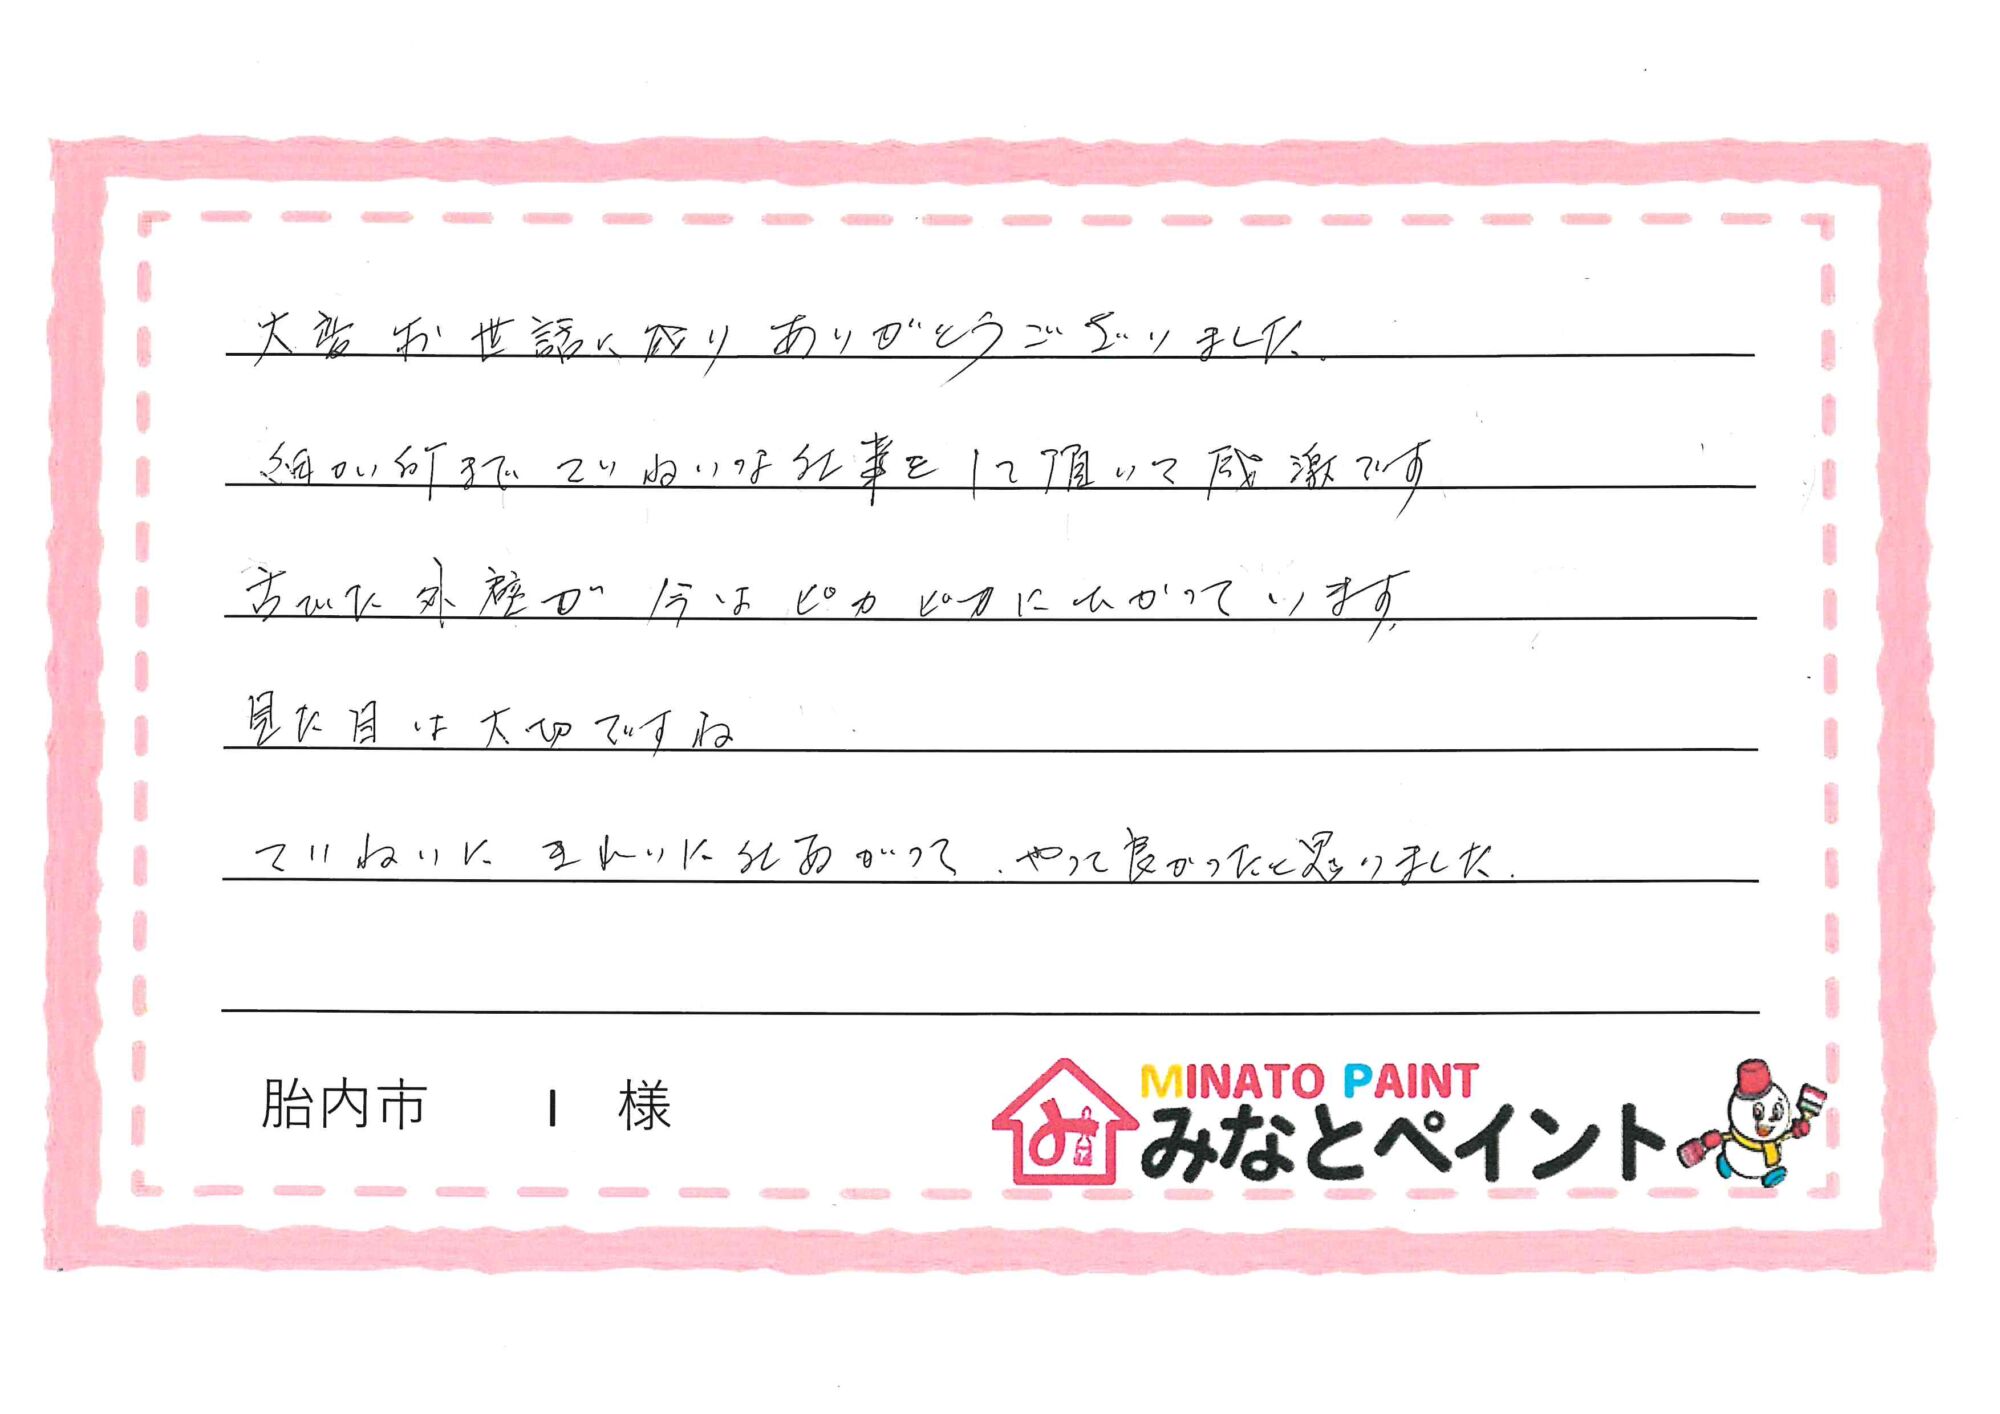 大変お世話に成りありがとうございました。
細かい所までていねいな仕事をして頂いて感激です
古びた外壁が今はピカピカにひかっています。
見た目は大切ですね
ていねいにきれいに仕あがって、やって良かったと思いました。
胎内市 I 様
MINATO PAINT
みなとペイント
み